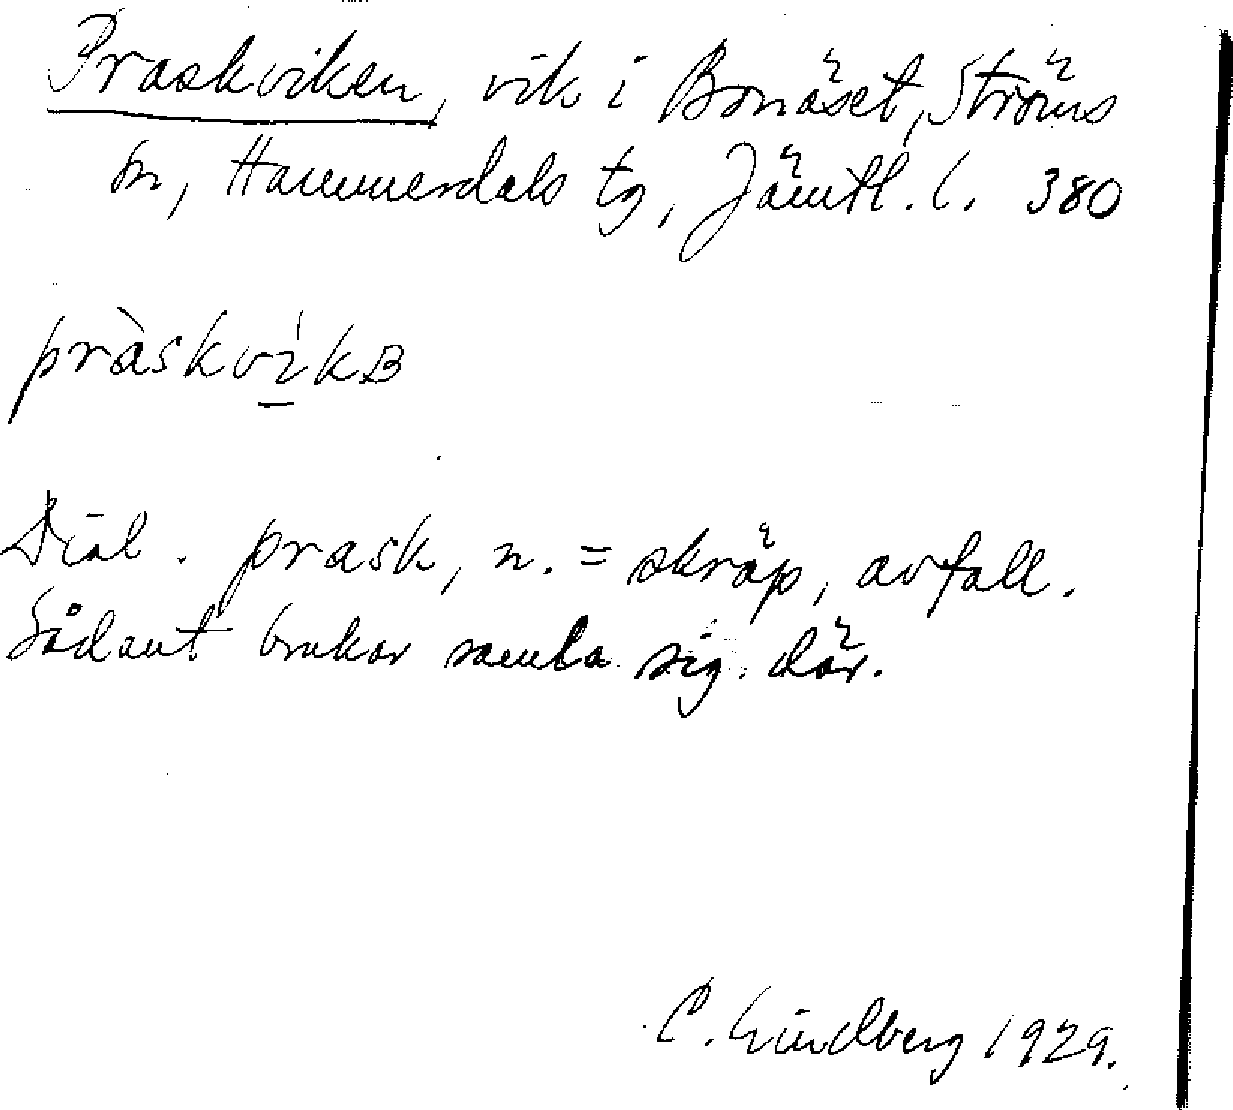 Praskviken, vik i Bonäset, Ströms
sn, Hammerdals tg, Jämtl. l. 380
pràskvíkB
Dial. prask, n. = skräp, avfall.
Sådant brukar samla sig där.
C. Lindberg 1929.